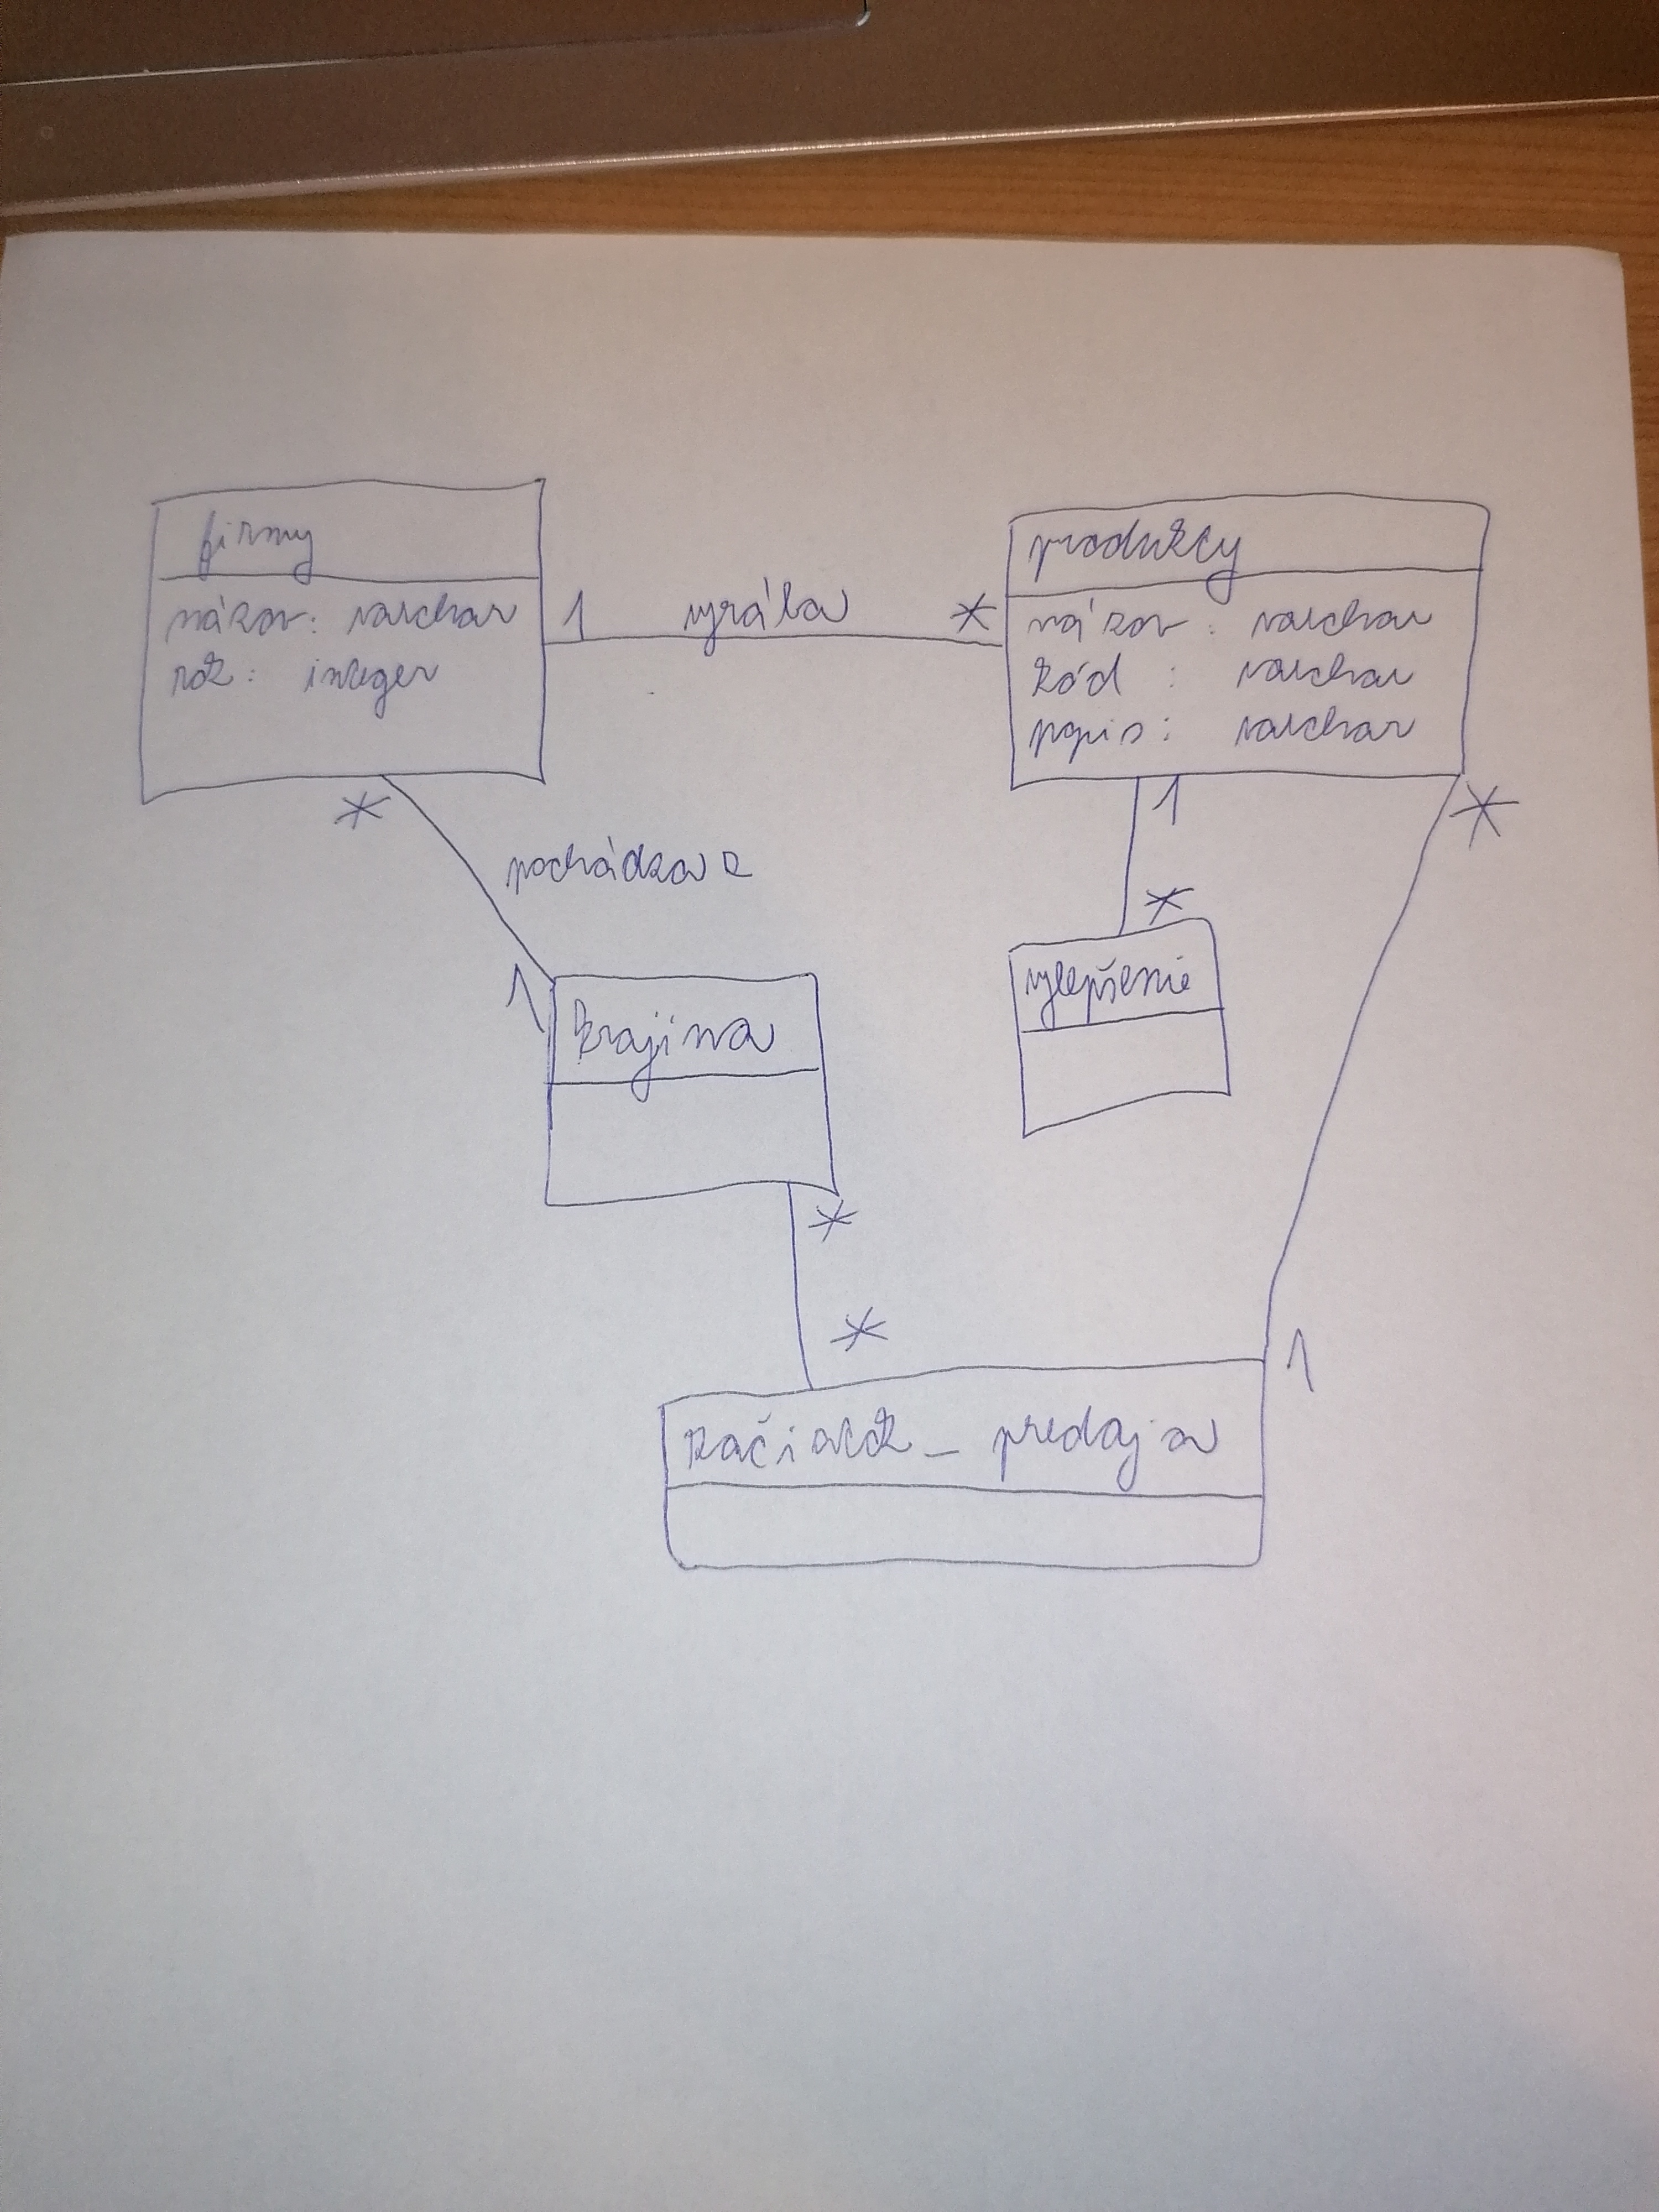 firmy
názov: varchar
rok: integer
1 vyrába *
produkty
názov: varchar
kód: varchar
popis: varchar
*
pochádza z
1
1
*
*
krajina
vylepšenie
*
*
1
začiatok_predaja